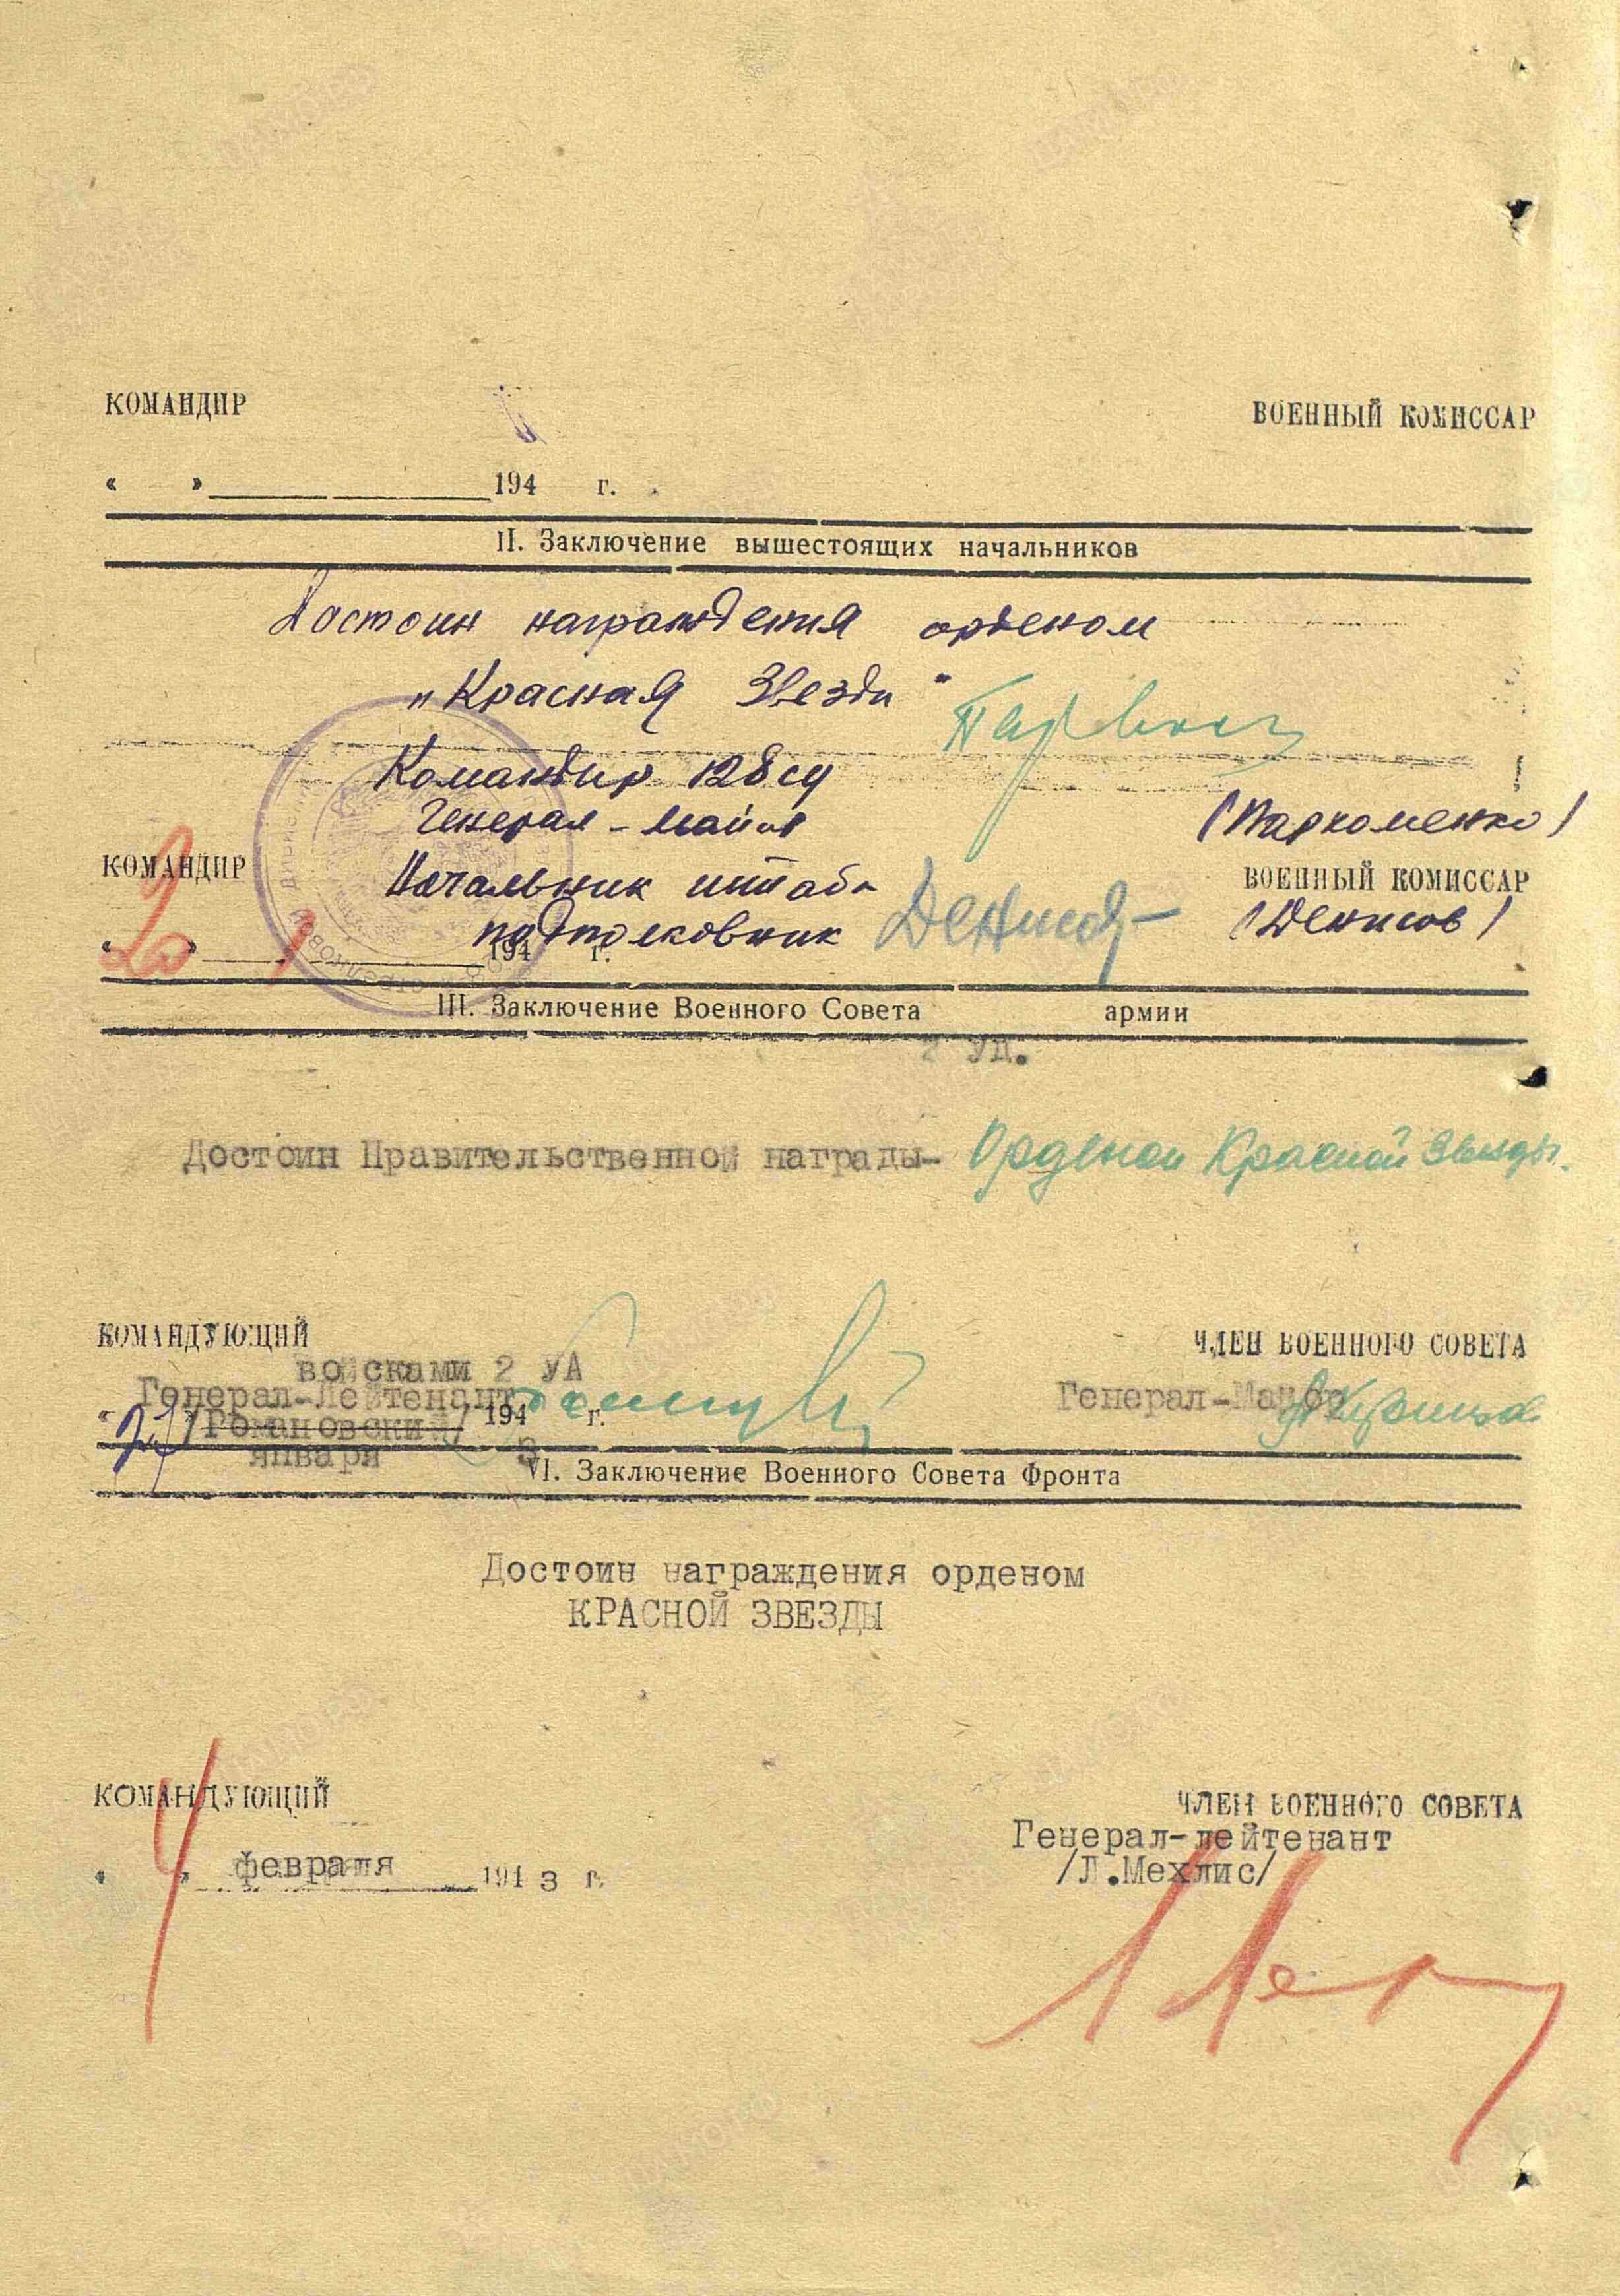 КОМАНДИР ВОЕННЫЙ КОМИССАР
« » 194 г.
II. Заключение вышестоящих начальников
Достоин награждения орденом
„Красная Звезда"
Командир 128 сд
Генерал-майор (Пархоменко)
КОМАНДИР Начальник штаба ВОЕННЫЙ КОМИССАР
подполковник Денисов (Денисов)
« 20 » 1 194 г.
III. Заключение Военного Совета армии
2 УД.
Достоин Правительственной награды- Орденом Красной Звезды.
КОМАНДУЮЩИЙ ЧЛЕН ВОЕННОГО СОВЕТА
войсками 2 УА
Генерал-Лейтенант Генерал-Майор
/Романовский/ 194 г.
января 3
VI. Заключение Военного Совета Фронта
Достоин награждения орденом
КРАСНОЙ ЗВЕЗДЫ
КОМАНДУЮЩИЙ ЧЛЕН ВОЕННОГО СОВЕТА
Генерал-лейтенант
/Л.Мехлис/
« 4 » февраля 1943 г.